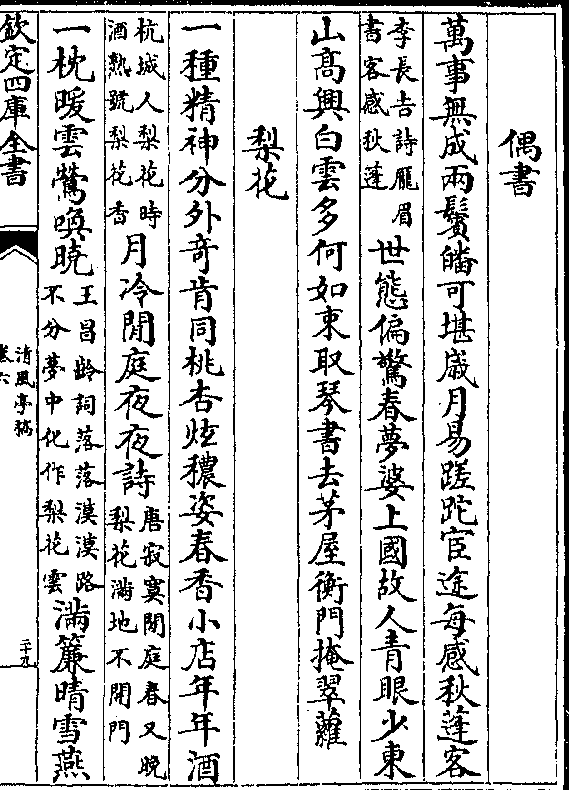 偶書
萬事無成兩鬢皤可堪歲月易蹉跎宦途每感秋蓬客
李長吉詩龎眉
書客感秋蓬
世態偏驚春夢婆上國故人青眼少東
山髙興白雲多何如束取琴書去茅屋衡門掩翠蘿
梨花
一種精神分外奇肯同桃杏炫穠姿春香小店年年酒
杭城人梨花時
酒熟號梨花春
月冷閒庭夜夜詩
唐寂寞閒庭春又晚
梨花滿地不開門
一枕暖雲鶯喚曉
王昌齡詞落落漠漠路
不分夢中化作梨花雲
滿簾晴雪燕
欽定四庫全書
清風亭稿
卷六
二十九